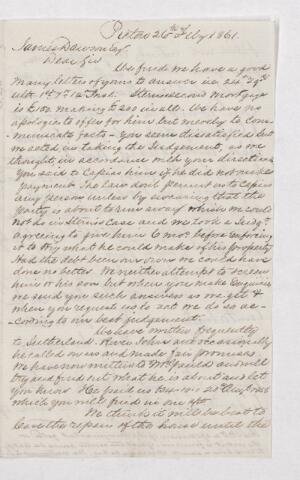 Pictou 26th July 1861.
James Dawson Esq
Dear Sir
We find we have a good
many letters of yours to answer viz 24th
ult. 1st 7th 12th Inst. second mortgage
is £ making £ in all. We have no
apologies to offer for him but merely to com-
municate facts – You seem dissatisfied but
we acted in taking the Judgement, as we
thought, in accordance with your directions
You said to Capias him if he did not make
payment. The law don't permit us to Capias
any person unless by swearing that the
party is about to run away which we could
not do in case and we took a Judgt
agreeing to give him 6 mos. before enforcing
it to try what he could make of his property
Had the debt been our own we could have
done no better. We neither attempt to screen
him or his son but when you make Enquiries
we send you such answers as we get &
when you request us to act we do so ac-
cording to our best judgement.
We have written frequently
to Sutherland River John and occasionally
he called on us and made fair promises.
We have now written to Mr and will
try and find out what he is about and let
you know. He paid us
which you will find in our
We think it will be best to
leave the repair of the house until the